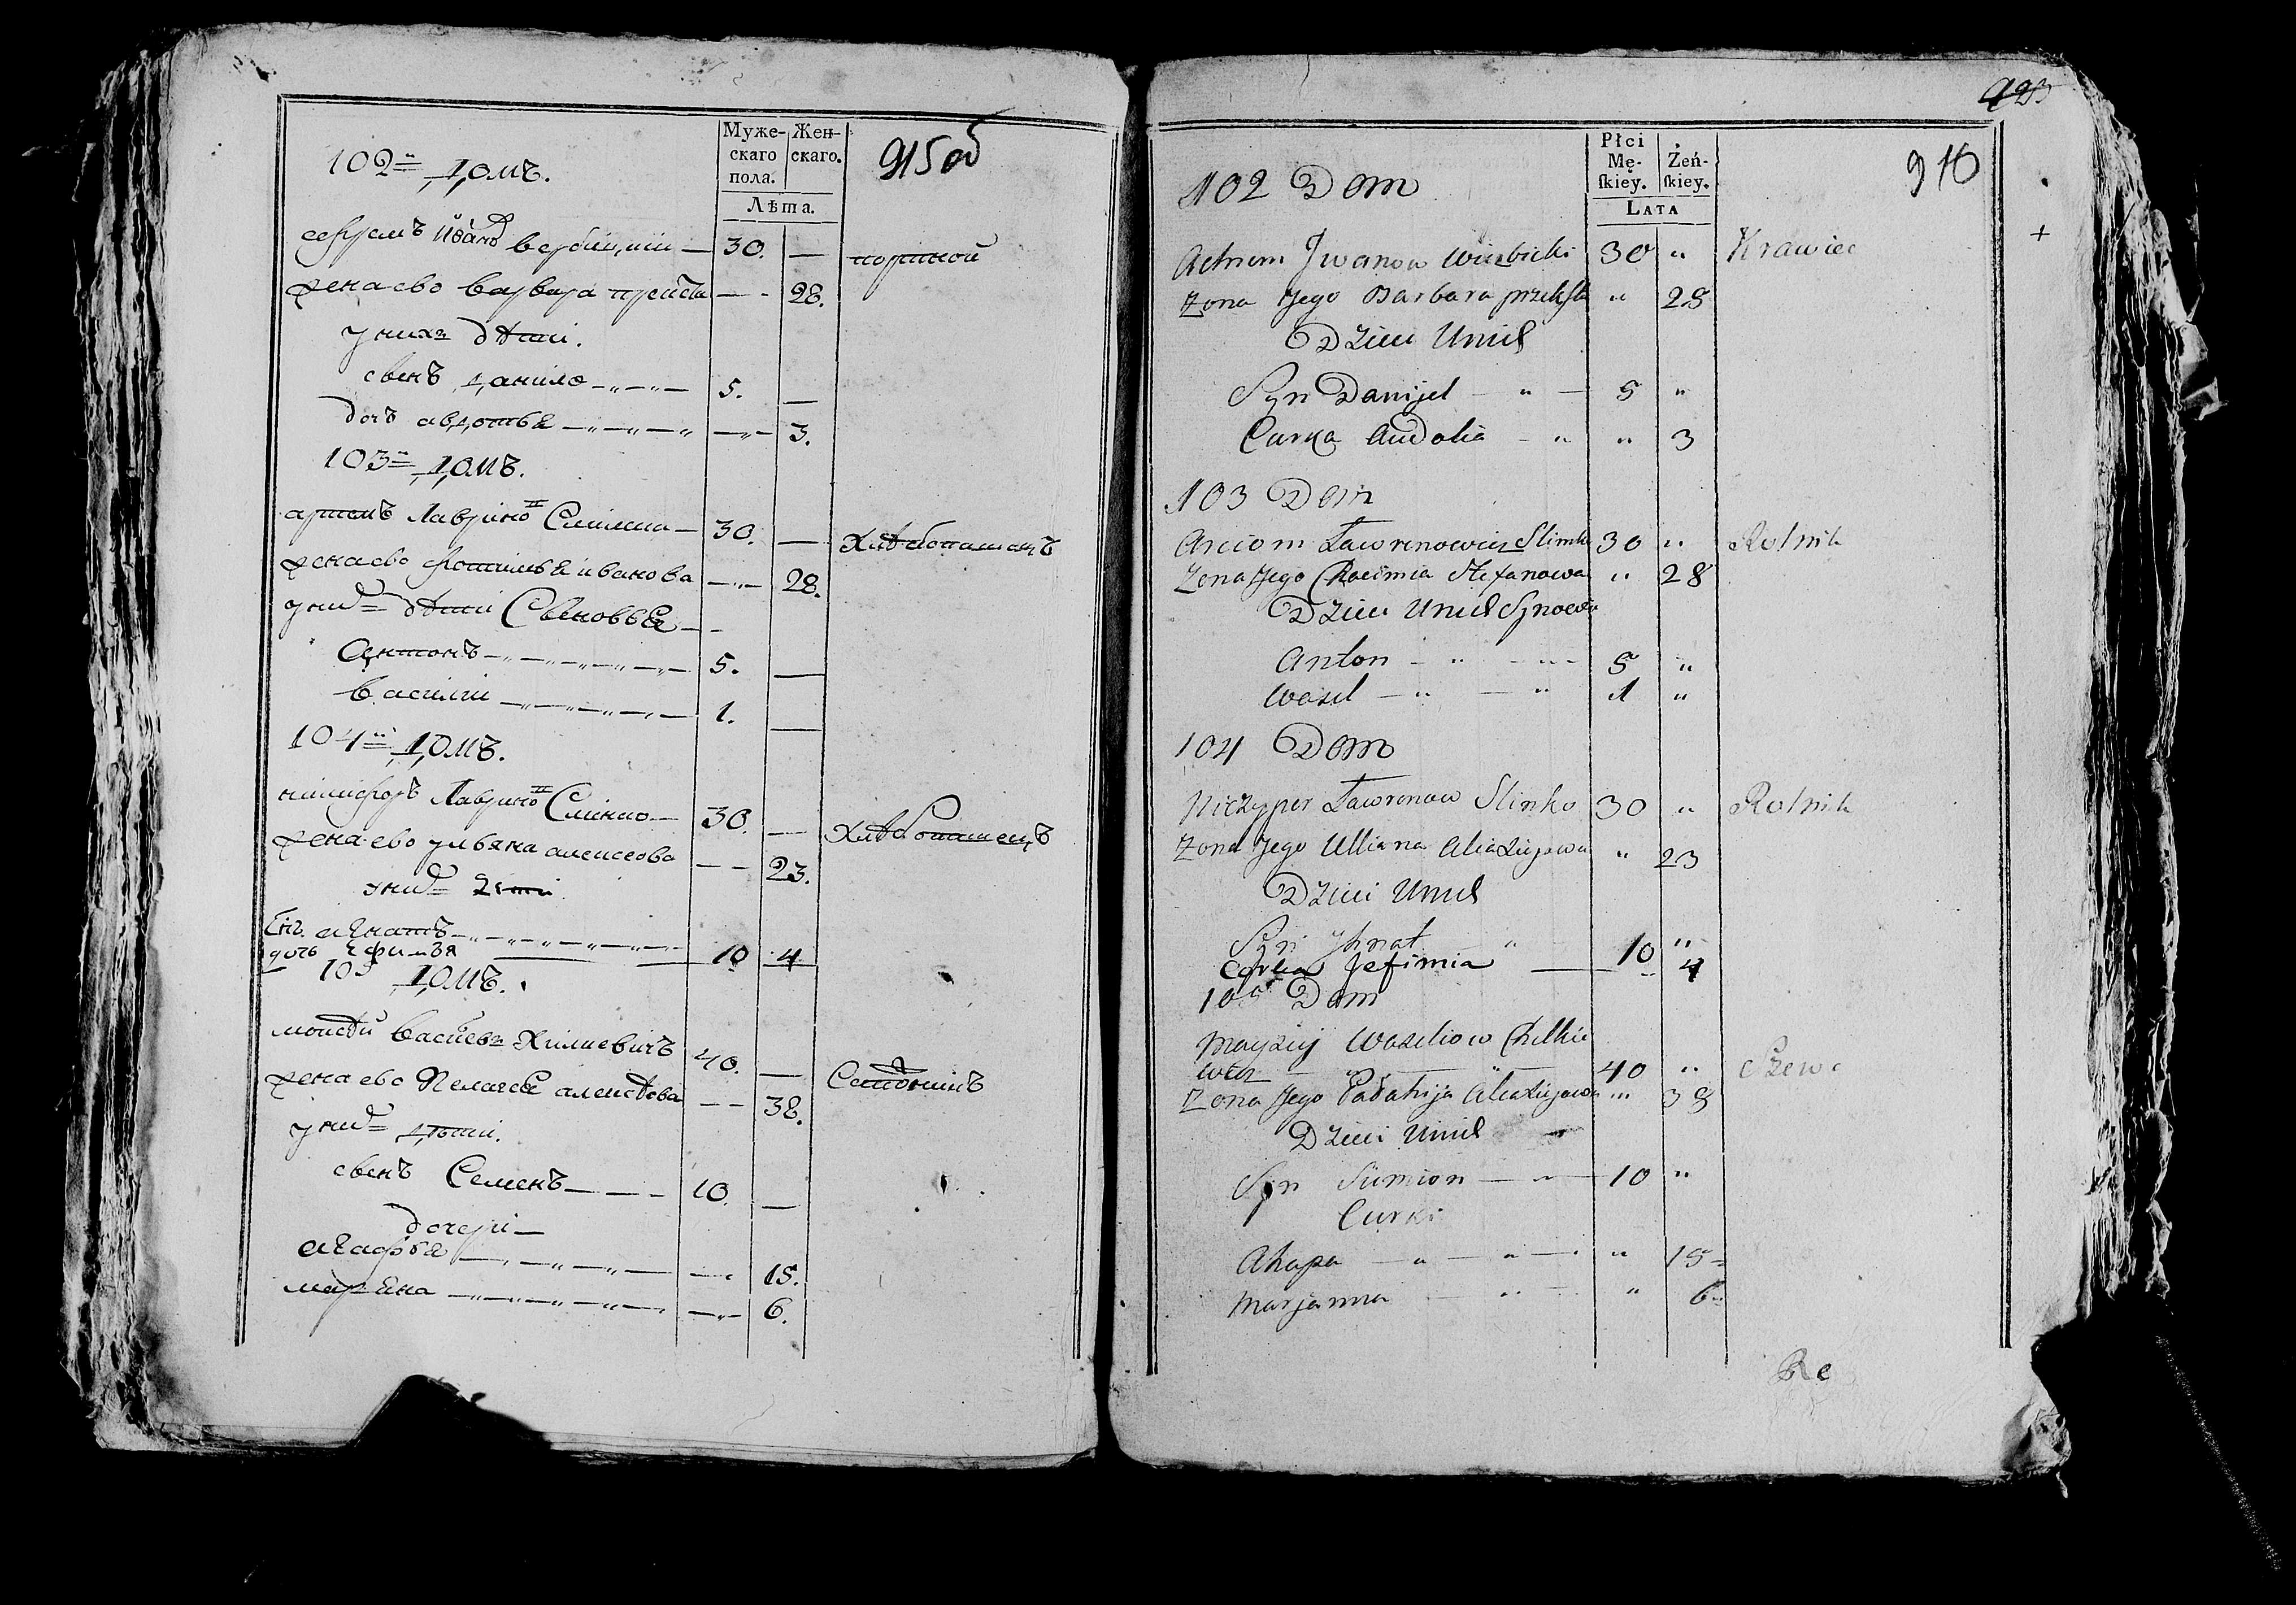 915 об
Муже-
скаго
пола.
Жен-
скаго.
Лѣта.
102й домъ.
Иванов вербицкии — 30. — портной
жена ево варвара — 28.
у нихъ дѣти.
свенъ данило 5. —
дочь авдотья — 3.
103й домъ.
артемъ Лаврино II 30. — Хлѣбопашецъ
жена ево иванова — 28.
у них дѣти Свеновья
Антонъ 5. —
василии 1. —
104й домъ.
никифоръ Лаврино III Слинко 30. — Хлѣбопашецъ
жена ево ульяна алексеова — 23.
у них дети
игнатъ
дочь Ефимья 10 4
105 домъ.
моисѣй Васиевъ Хилкевичъ 40. —
жена ево Пелагея алексѣова — 38.
у них дѣти.
свенъ Семенъ 10. —
дочери
агафья — 15.
марьяна — 6.
923
916
Płci
Mę-
ſkiey.
Żeń-
ſkiey.
LATA
+
102 Dom
Achrem Jwanow Wierbicki 30 " Krawiec
Zona Jego Barbara " 28
Dzieci Unich
Syn Danijel — " — 5 "
Curka Audotia — " " 3
103 Dom
Arciom Ławrenowicz Slinko 30 " Rolnik
Zona Jego Stefanowa " 28
Dzieci Unich Synowie
Anton — " — " — 5 "
Wasil — " — " 1 "
104 Dom
Niczyper Ławrenow Slinko 30 " Rolnik
Zona Jego Ulliana Aliaxiejowa " 23
Dzieci Unich
Syn Jhnat " 10 "
Corka Jefimia — 4
105 Dom
Mayziej Wasiliow Chilkie
wicz — " — " — 40 " Szewc
Zona Jego Aliaxiejowa " 38
Dzieci Unich
Syn Siemion — " — 10 "
Curki
Ahapa — " — " — " 15
Marjanna — " — " 6
Re